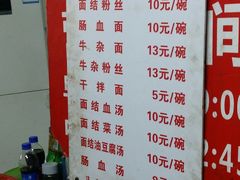 面结粉丝 10元/碗
肠血面 10元/碗
牛杂面 13元/碗
牛杂粉丝 13元/碗
干拌面 5元/碗
面结血汤 10元/碗
面结菜汤 10元/碗
面结油豆腐汤 10元/碗
肠血汤 10元/碗
间